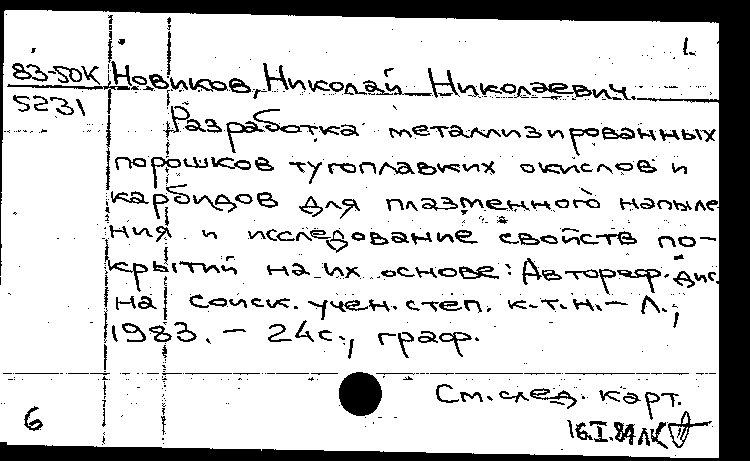 1.
83-50К Новиков, Николай Николаевич.
5231
Разработка металлизированных
порошков тугоплавких окислов и
карбидов для плазменного напыле
ния и исследование свойств по-
крытий на их основе: Автореф. дис.
на соиск. учен. степ. к.т.н. – Л.,
1983. – 24с., граф.
См. след. карт.
6
16.I.84